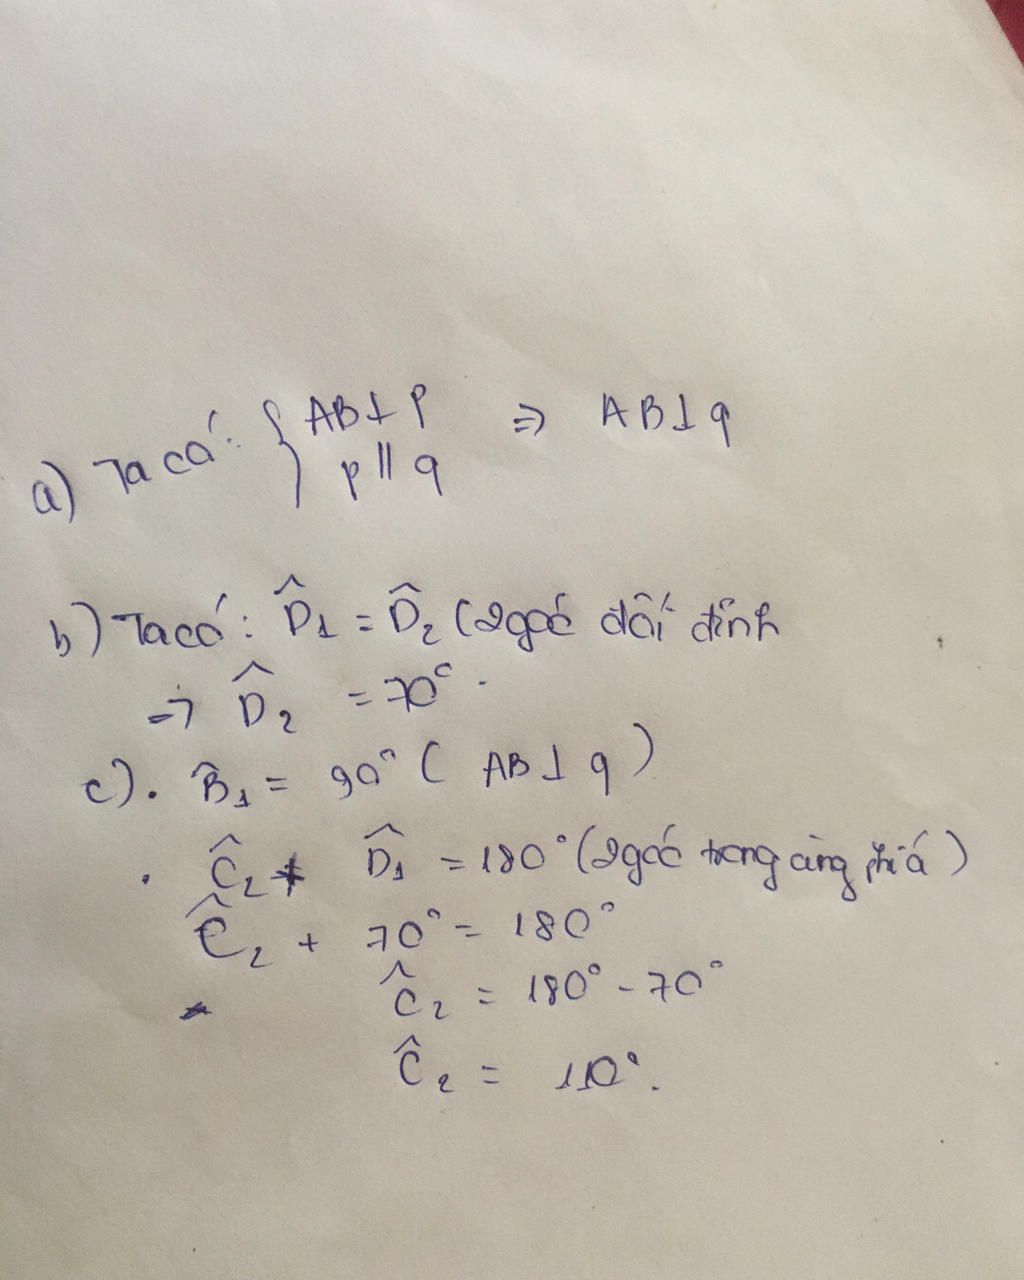 a) Ta có: { AB ⊥ p ⇒ AB ⊥ q
p // q
b) Ta có: D̂₁ = D̂₂ (2 góc đối đỉnh
⇒ D̂₂ = 70°.
c). B̂₁ = 90° ( AB ⊥ q )
. Ĉ₂ + D̂₁ = 180° (2 góc trong cùng phía)
Ĉ₂ + 70° = 180°
Ĉ₂ = 180° - 70°
Ĉ₂ = 110°.